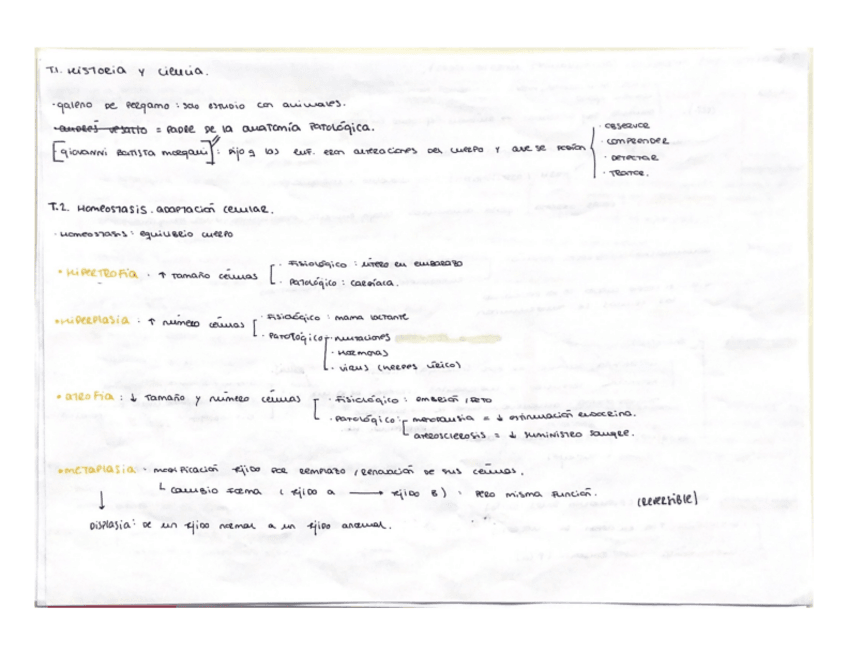 T.1. Historia y ciencia.
· galeno de Pergamo : solo estudio con animales.
· andrés vesalio = Padre de la anatomía Patológica.
[giovanni Battista morgani] : dijo q las enf. eran alteraciones del cuerpo y que se podían
· observar
· comprender
· detectar
· tratar.
T.2. Homeostasis. adaptación celular.
· Homeostasis : equilibrio cuerpo
· Hipertrofia · ↑ tamaño células
· Fisiológico : útero en embarazo
· Patológico : cardíaca.
· Hiperplasia · ↑ número células
· Fisiológico : mama lactante
· Patológico · mutaciones
· Hormonas
· virus (herpes lírico)
· atrofia : ↓ tamaño y número células
· Fisiológico : embrión / feto
· Patológico : menopausia = ↓ estimulación endocrina.
aterosclerosis = ↓ suministro sangre.
· metaplasia · modificación tejido por remplazo / renovación de sus células.
cambio forma ( tejido a → tejido B ) : Pero misma función.
(reversible)
↓
Displasia : De un tejido normal a un tejido anormal.